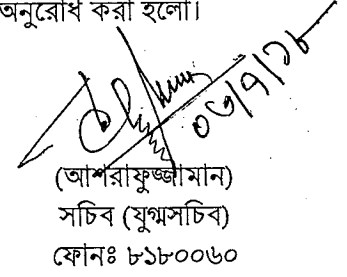 অনুরোধ করা হলো।
০৩/৭/১৮
(আশরাফুজ্জামান)
সচিব (যুগ্মসচিব)
ফোনঃ ৮১৮০০৬০